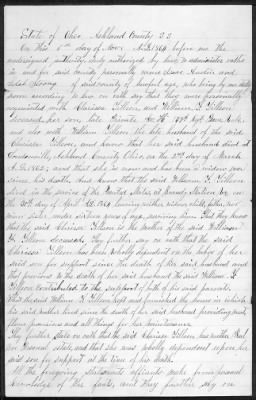 State of Ohio Ashland County S.S.
On this 5th day of Nov. A.D. 1864 before me the
undersigned authority duly authorized by law to administer oaths
in and for said county personally came Isaac Austin and
of said county of lawful age, who being by me duly
sworn according to law on oath say that they were personally
acquainted with Clarissa Tilson and William T. Tilson
deceased her son late Private Co.
and also with William Tilson the late husband of the said
Clarissa Tilson, and know that her said husband died at
Ashland County Ohio, on the 3rd day of March
A.D. 1862, and that she in many has been a widow ever
since his death, and know that the said William T. Tilson
died in the service of the United States, at Station Va. on
the 30th day of April A.D. 1864 leaving neither widow, child, father, nor
minor sister under sixteen years of age, surviving him. That they know
that the said Clarissa Tilson is the mother of the said William
T. Tilson deceased. They further say on oath that the said
Clarissa Tilson has been wholly dependent on the labor of her
said son for support since the death of her said husband and
that previous to the death of her said husband the said William T.
Tilson contributed to the support of both of his said parents.
That the said William T. Tilson kept and furnished the house in which
his said mother lived since the death of her said husband providing meat
flour provisions and all things for her maintenance.
They further state on oath that the said Clarissa Tilson, his mother had
no estate, and that she was wholly dependent upon her
said son for support at the time of his death.
All the foregoing statements affiants make from personal
knowledge of the facts, and they further say on